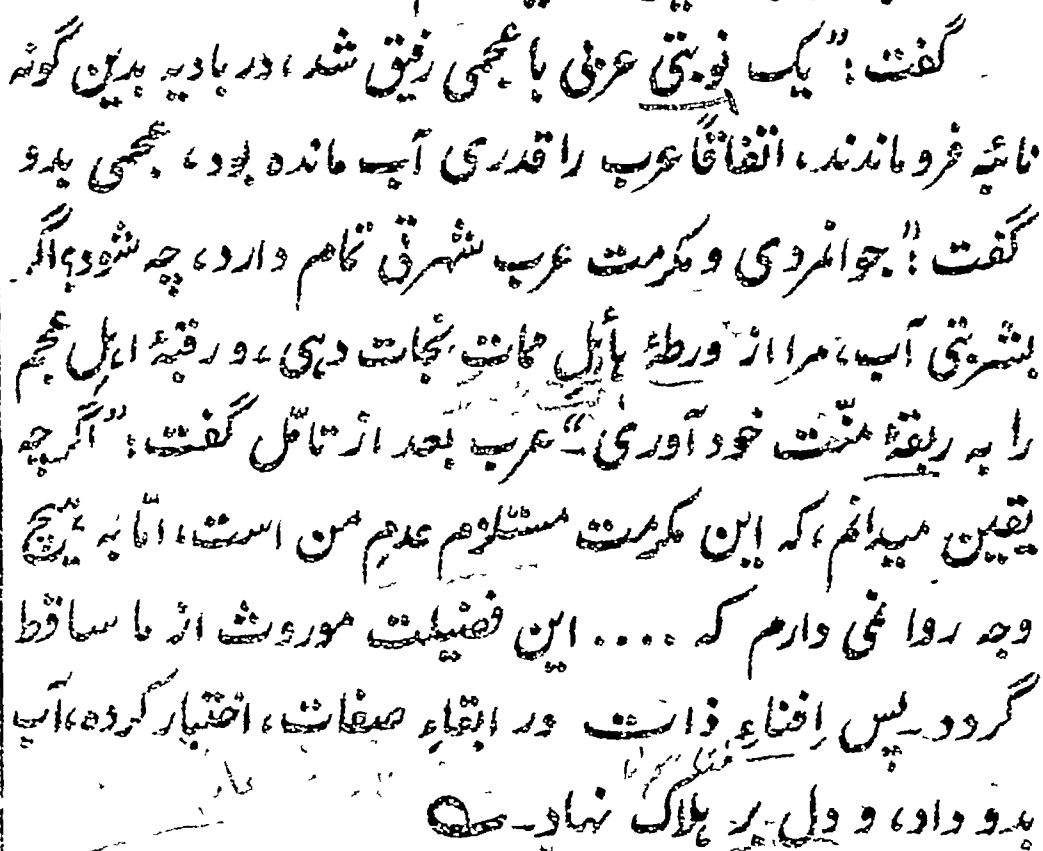 گفت: "یک نوبتی عربی با عجمی رفیق شد، در بادیہ بدین گونہ
نائبہ فرو ماندند، اتفاقاً عرب را قدری آب ماندہ بود، عجمی بدو
گفت: "جوانمردی و مکرمت عرب شہرتی تمام دارد، چہ شود؟ اگر
بشربتی آب، مرا از ورطۂ ہائلِ ممات نجات دہی، و رقبۂ اہلِ عجم
را بہ ربقۂ منّت خود آوری۔" عرب بعد از تامّل گفت: "اگرچہ
یقین میدانم، کہ این مکرمت مستلزم عدمِ من است، امّا بہ ہیچ
وجہ روا نمی دارم کہ .... این فضیلت موروث از ما ساقط
گردد۔ پس اِفناءِ ذات در ابقاءِ صفات، اختیار کردہ، آب
بدو داد، و دل بر ہلاک نہاد۔